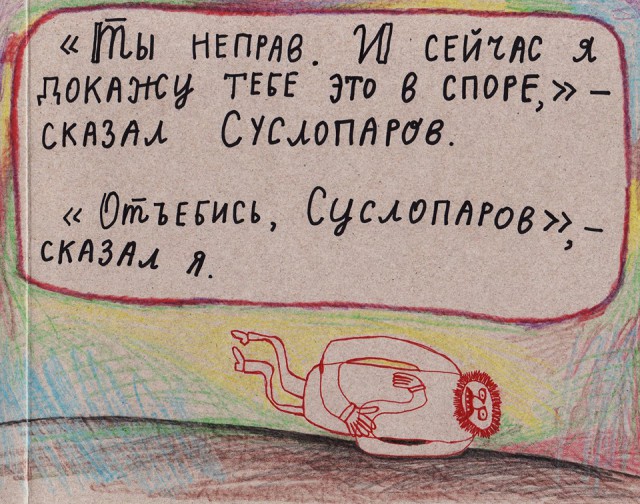 «Ты неправ. И сейчас я
докажу тебе это в споре,» –
сказал Суслопаров.
«Отъебись, Суслопаров», –
сказал я.